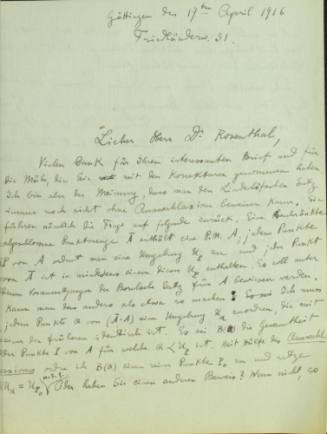 Göttingen den 17ten April 1916
Friedländerw. 31.
Lieber Herr Dr. Rosenthal,
Vielen Dank für Ihren interessanten Brief und für
die Mühe, die Sie mit den Korrekturen genommen haben
Ich bin aber der Meinung, dass man den Lindelöfschen Satz
immer noch nicht ohne Auswahlaxiom beweisen kann. Sie
führen nämlich die Frage auf folgende zurück. Eine
abgeschlossene Punktmenge Ā enthält eine P.M. A; jedem Punkte
P von A ordnet man eine Umgebung U zu und jeder Punkt
von Ā ist in mindestens einem dieser U enthalten. Es soll unter
diesen Voraussetzungen der Borelsche Satz für A bewiesen werden.
Kann man das anders als etwa so machen?
jedem Punkte Q von (Ā-A) eine Umgebung zuordnen, die mit
einer der früheren identisch ist. Es sei B(Q) die Gesamtheit
der Punkte P von A für welche Q < U ist. Mit Hülfe des Auswahl
axioms ordne ich B(Q) einen seiner Punkte P₀ zu und setze
Oder haben Sie einen anderen Beweis? Wenn nicht, so